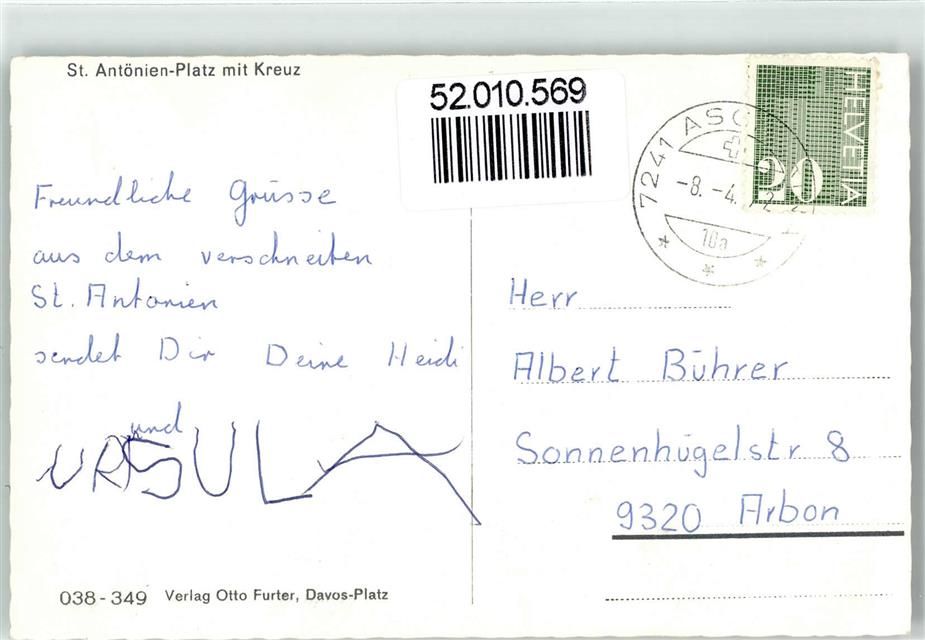 St. Antönien-Platz mit Kreuz
52.010.569
HELVETIA
20
7241
-8.-4.
10a
Freundliche Grüsse
aus dem verschneiten
St. Antonien
sendet Dir Deine Heidi
und
URSULA
Herr
Albert Bührer
Sonnenhügelstr 8
9320 Arbon
038-349 Verlag Otto Furter, Davos-Platz